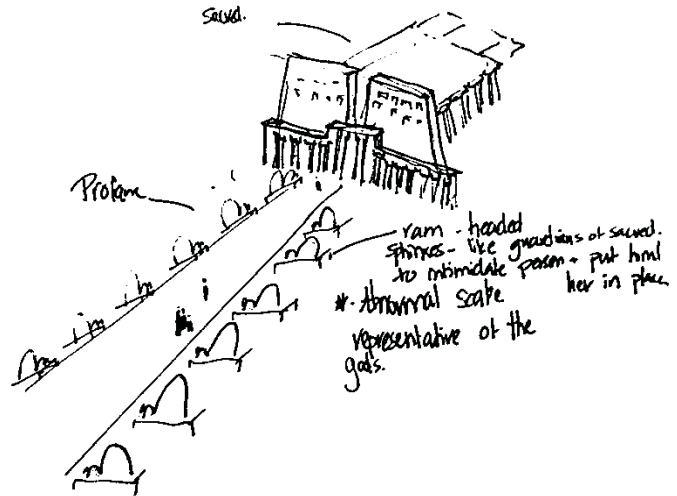 Sacred.
Profane
ram - headed
sphinxes - like guardians of sacred.
to intimidate person + put him/
her in place
* - Abnormal scale
representative of the
gods.